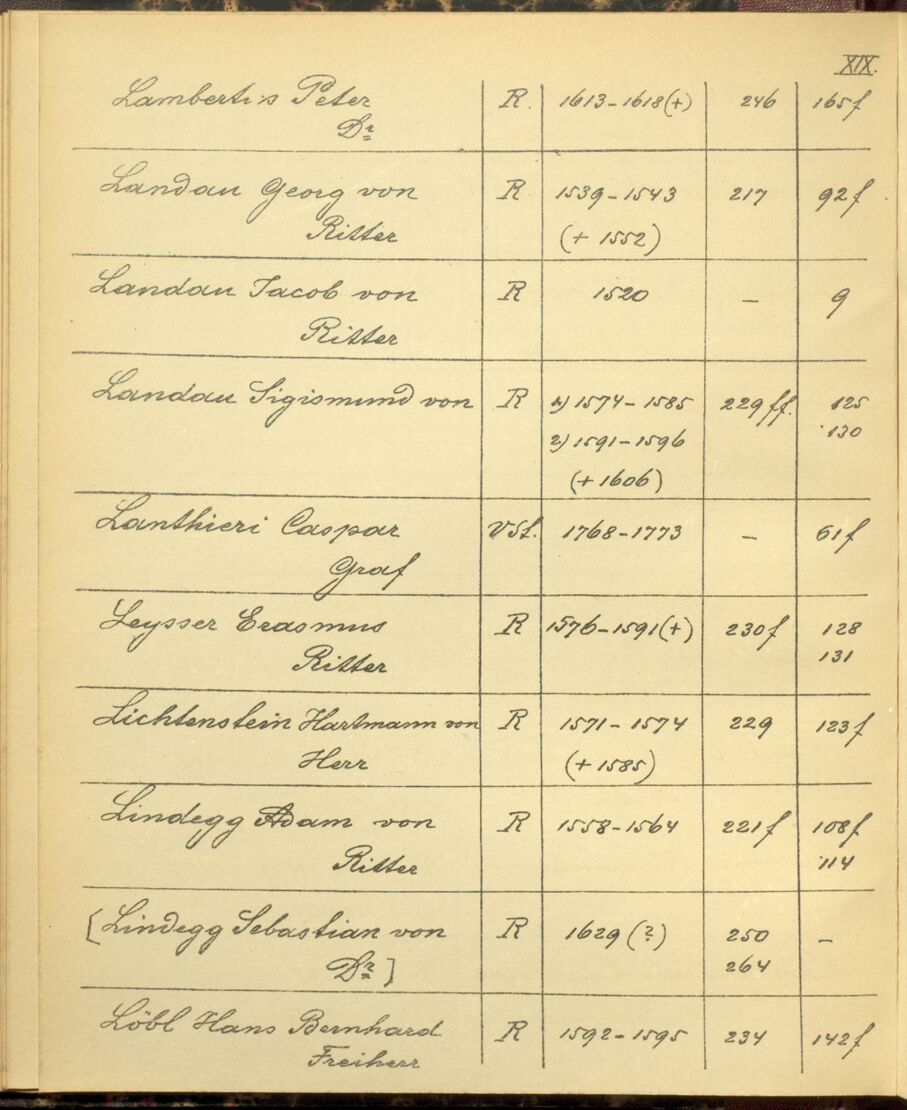 XIX.
Lambertis Peter R. 1613-1618(+) 246 165f
Dr
Landau Georg von R 1539-1543 217 92f
Ritter (+ 1552)
Landau Jacob von R 1520 - 9
Ritter
Landau Sigismund von R 1) 1574-1585 229ff. 125
2) 1591-1596 130
(+ 1606)
Lanthieri Caspar VSt. 1768-1773 - 61f
Graf
Leysser Erasmus R 1576-1591(+) 230f 128
Ritter 131
Lichtenstein Hartmann von R 1571-1574 229 123f
Herr (+ 1585)
Lindegg Adam von R 1558-1564 221f 108f
Ritter 114
[Lindegg Sebastian von R 1629 (?) 250 -
Dr] 264
Löbl Hans Bernhard R 1592-1595 234 142f
Freiherr